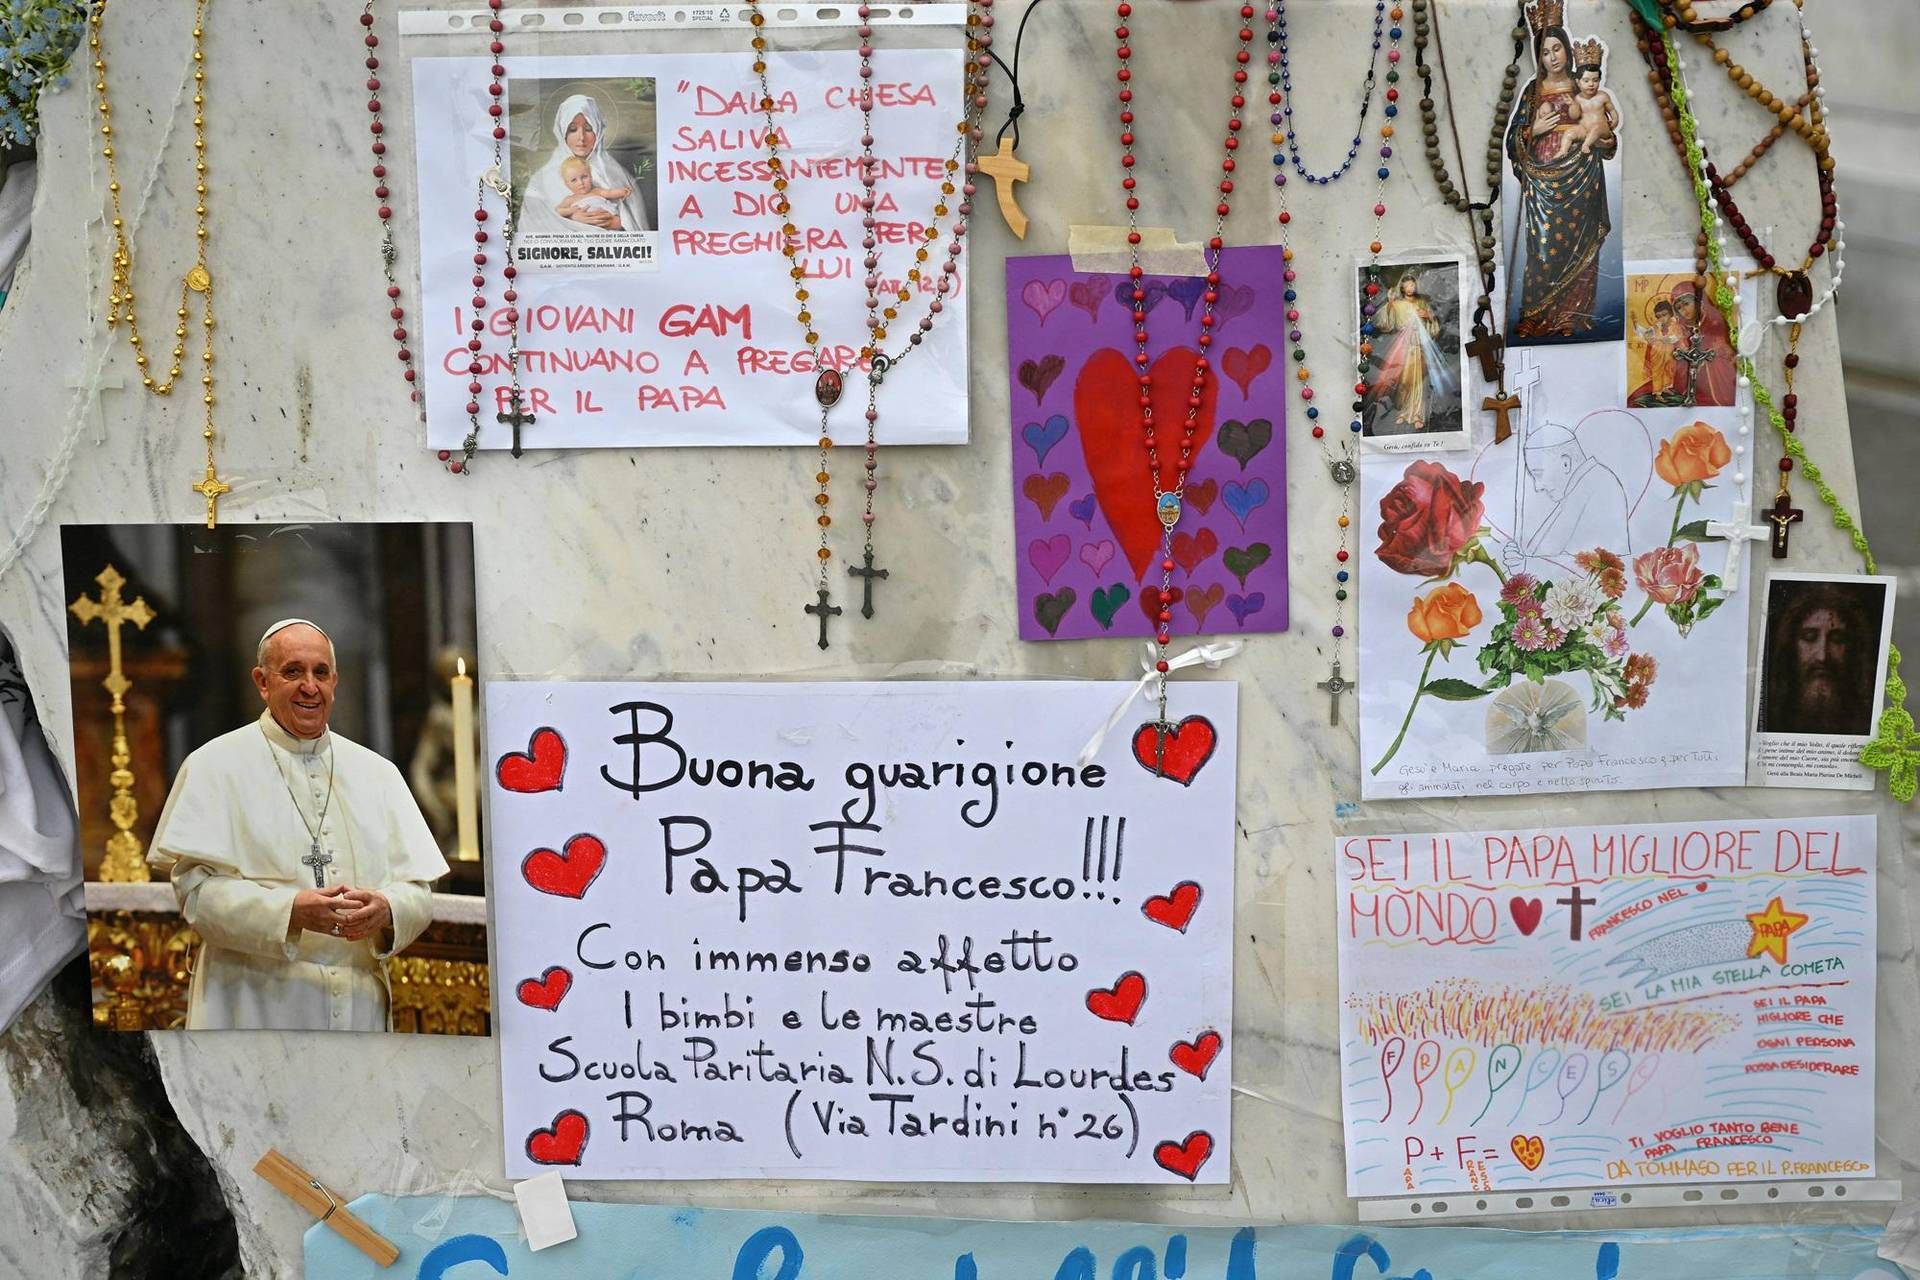 favorit
1725/10
SPECIAL
"DALLA CHIESA
SALIVA
INCESSANTEMENTE
A DIO UNA
PREGHIERA PER
LUI"
SIGNORE, SALVACI!
I GIOVANI GAM
CONTINUANO A PREGARE
PER IL PAPA
Gesù, confido in Te!
MP
Gesù e Maria pregate per Papa Francesco e per tutti
gli ammalati nel corpo e nello spirito.
Gesù alla Beata Maria Pierina De Micheli
Buona guarigione
Papa Francesco!!!
Con immenso affetto
I bimbi e le maestre
Scuola Paritaria N.S. di Lourdes
Roma (Via Tardini n° 26)
SEI IL PAPA MIGLIORE DEL
MONDO
FRANCESCO NEL
PAPA
SEI LA MIA STELLA COMETA
SEI IL PAPA
MIGLIORE CHE
OGNI PERSONA
POSSA DESIDERARE
FRANCESC
P + F =
APA RANCESCO
TI VOGLIO TANTO BENE
PAPA FRANCESCO
DA TOMMASO PER IL P. FRANCESCO